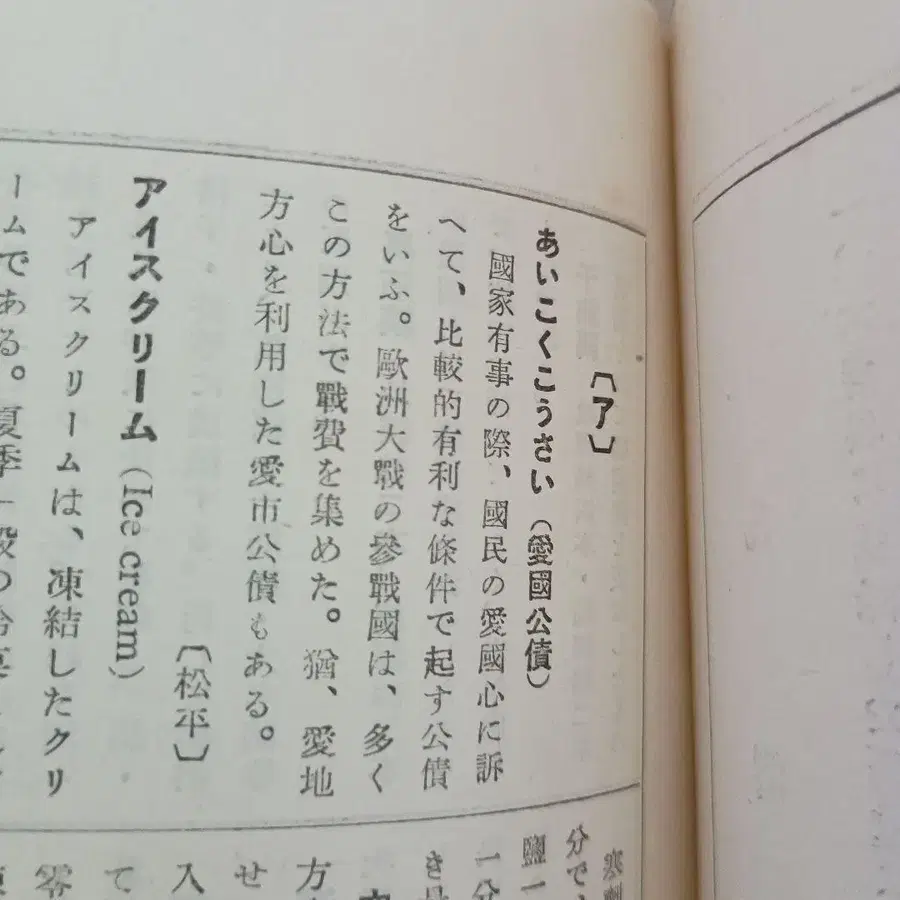 〔ア〕
あいこくこうさい（愛國公債）
國家有事の際、國民の愛國心に訴
へて、比較的有利な條件で起す公債
をいふ。歐洲大戰の參戰國は、多く
この方法で戰費を集めた。猶、愛地
方心を利用した愛市公債もある。
〔松平〕
アイスクリーム（Ice cream）
アイスクリームは、凍結したクリ
ームである。夏季一般の
分で、
鹽一
一分
き
方
せ
入
て
零